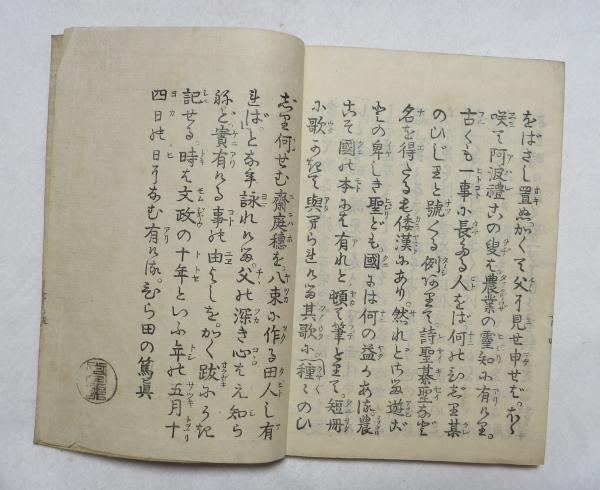 をばさし置ぬかくて父に見せ申せば
咲て阿波禮この叟は農業の靈知に有けり
古くも一事に長たる人をば何のひじり某
のひじりと號くる例ありて詩聖碁聖など
名を得たるも倭漢にあり然れどそは遊び
との卑しき聖ども國には何の益かある農
こそ國の本には有れと頓て筆とりて短冊
に歌かきて與へられける其歌に種々のひ
じり何せむ齋庭穗を八束に作る田人し有
ればとなも詠れける父の深き心をえ知ら
ねど實有ける事の由よしをかく跋にかき
記せる時は文政の十年といふ年の五月十
四日の日になむ有ける ひら田の篤眞